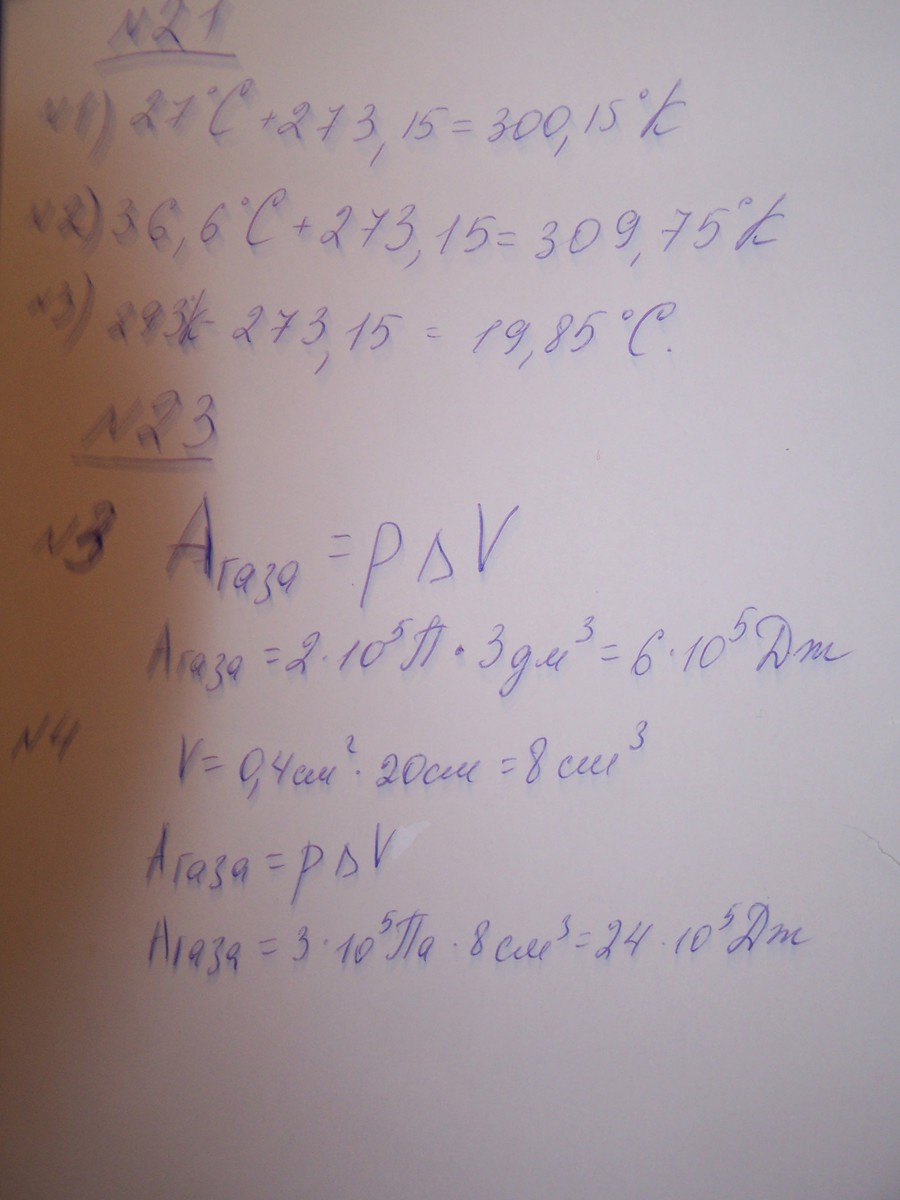 №21
№1) 27°C + 273,15 = 300,15°К
№2) 36,6°C + 273,15 = 309,75°К
№3) 293К - 273,15 = 19,85°C.
№23
№3 Aгаза = p∆V
Aгаза = 2·10⁵П · 3дм³ = 6·10⁵Дж
№4
V = 0,4см² · 20см = 8см³
Aгаза = p∆V
Aгаза = 3·10⁵Па · 8см³ = 24·10⁵Дж